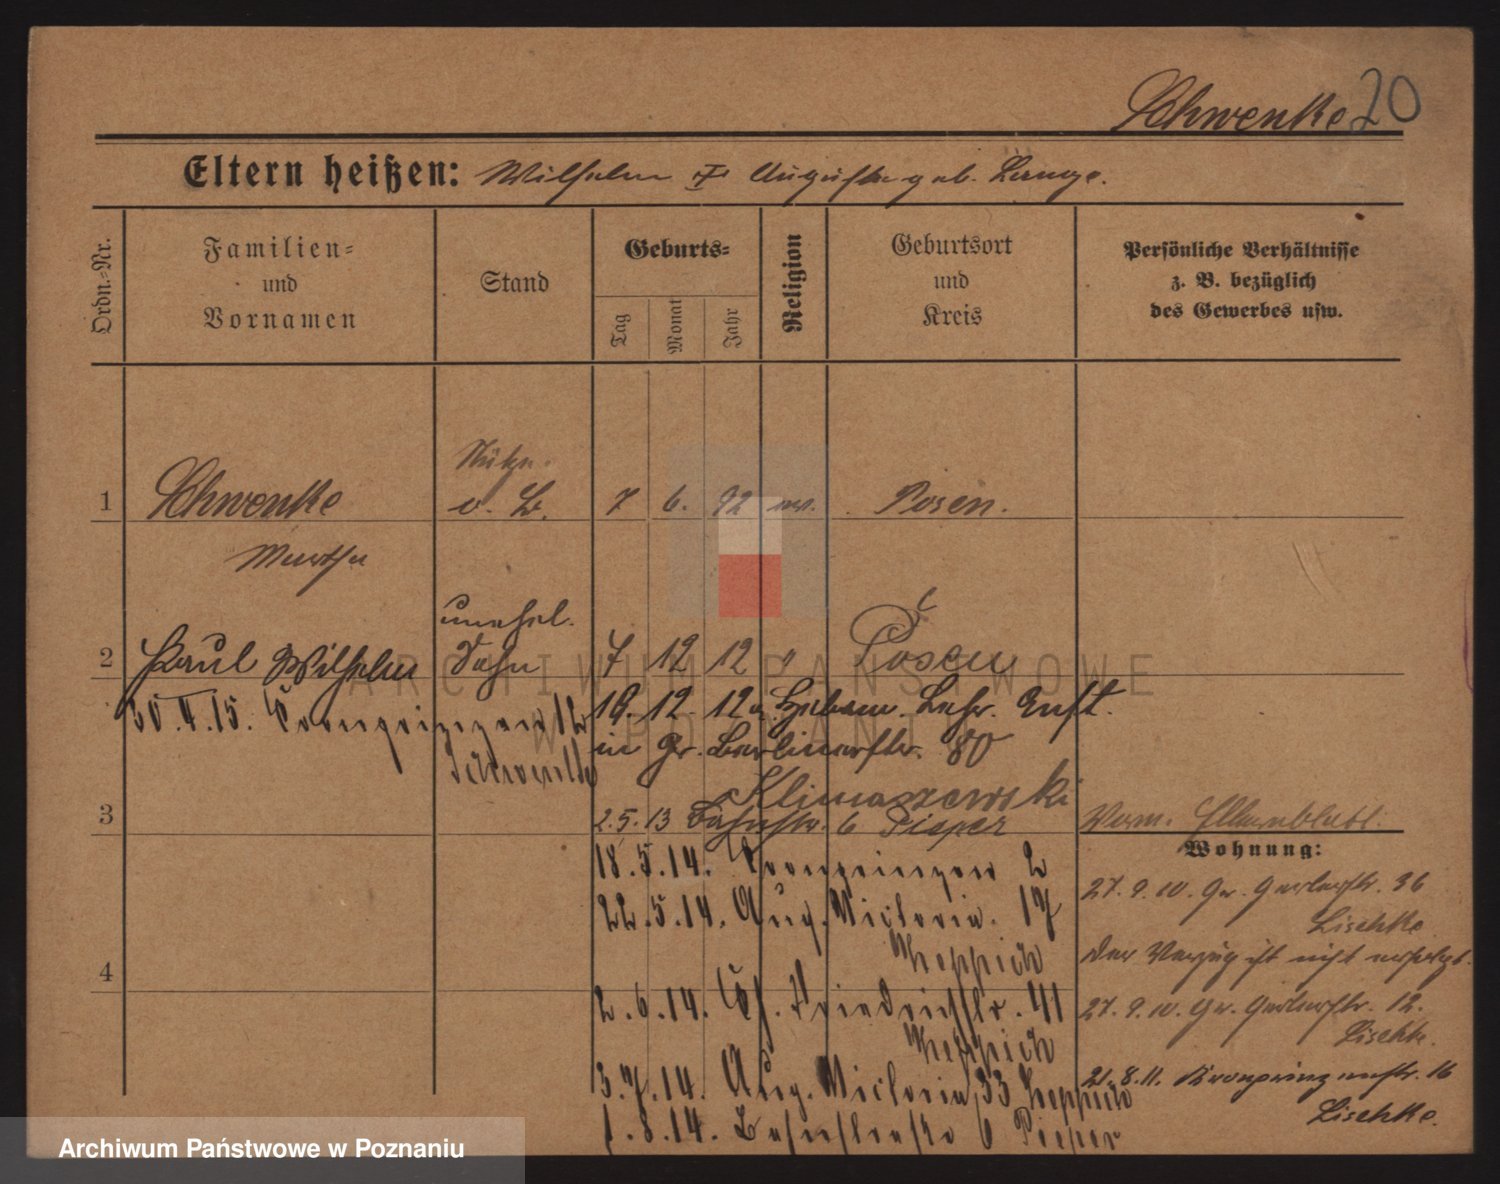 Schwenke 20
Eltern heißen: Wilhelm Auguste geb. Lange.
Ordn.-Nr.
Familien-
und
Vornamen
Stand
Geburts-
Tag
Monat
Jahr
Religion
Geburtsort
und
Kreis
Persönliche Verhältnisse
z. B. bezüglich
des Gewerbes usw.
1 Schwenke o. B. 7 6. 92 ev. Posen.
Martha
unehel.
2 Paul Wilhelm Sohn 7 12 12 " Posen
15. Kronprinzen 12
19. 12. 12 a. Hebam. Lehr. Anst.
in Gr. Berlinerstr. 80
Klimaszewski
3
2.5.13 Bahnstr. 6 Pieper
Vorm. Elternblatt.
Wohnung:
18.5.14. Kronprinzen 2
22.5.14. Aug. Victoria. 17
Heppich
4
2.6.14. Friedrichstr. 41
Heppich
3.7.14. Aug. Victoria 33 Heppich
1.8.14. Bahnstraße 6 Pieper
27.9.10. Gr. Gerberstr. 36
Lischke
Der Verzug ist nicht erfolgt.
27.9.10. Gr. Gerberstr. 12.
Lischke.
21.8.11. Kronprinzenstr. 16
Lischke.
ARCHIWUM PAŃSTWOWE
W POZNANIU
Archiwum Państwowe w Poznaniu